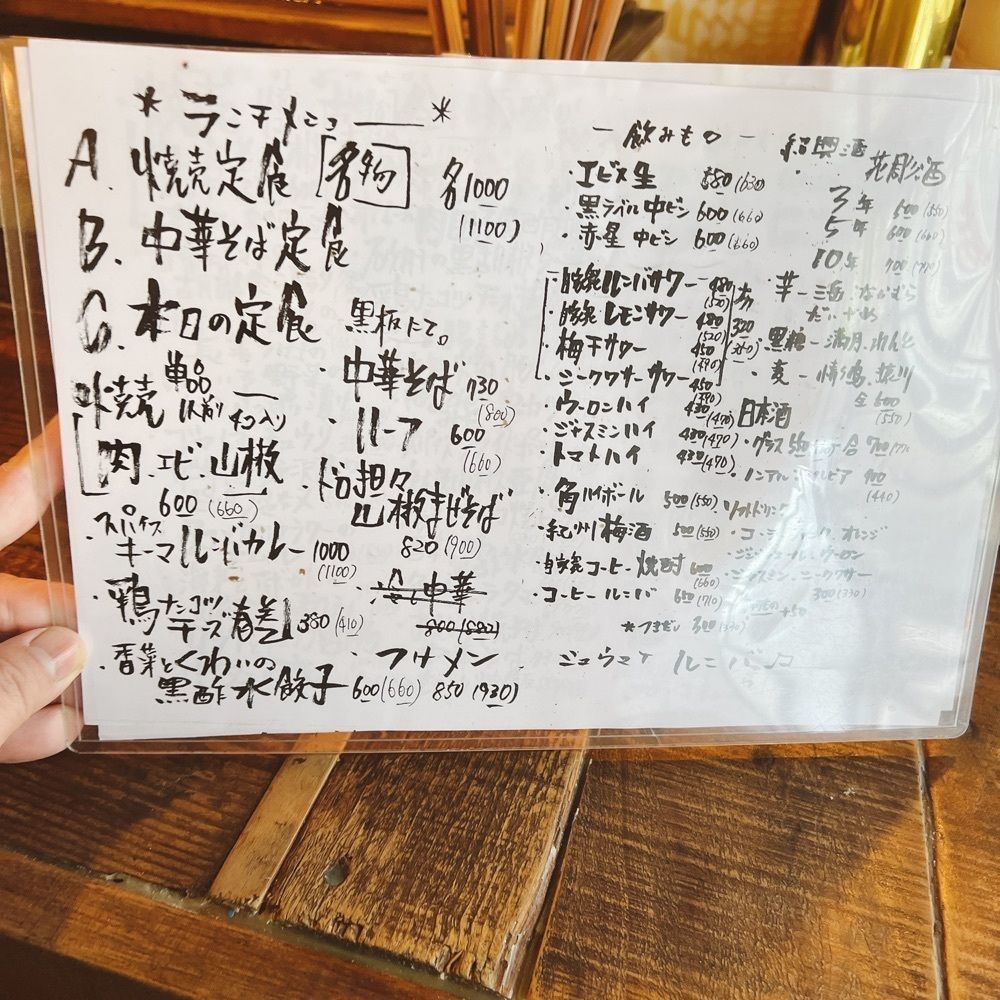 * ランチメニュー *
A. 焼売定食 [名物] 各1000
(1100)
B. 中華そば定食
C. 本日の定食 黒板にて。
焼売 単品 1人前 4コ入り
肉. エビ. 山椒
600 (660)
・スパイスキーマルンバカレー 1000
(1100)
・鶏ナンコツチーズ春巻 380 (410)
・香菜とくわいの
黒酢水餃子 600 (660)
・中華そば 730
(800)
・ハーフ 600
(660)
・汁なし担々
山椒まぜそば
820 (900)
・冷し中華
800 (880)
・つけメン
850 (930)
ー 飲みもの ー
・エビス生 580 (630)
・黒ラベル中ビン 600 (660)
・赤星 中ビン 600 (660)
・自家製ルンバサワー 480
(520)
・自家製レモンサワー 480
(520)
・梅干サワー 450
(490)
・シークワサーサワー 450
(490)
・ウーロンハイ 430 (470)
・ジャスミンハイ 430 (470)
・トマトハイ 430 (470)
・角ハイボール 500 (550)
・紀州梅酒 500 (550)
・自家製コーヒー焼酎 600
(660)
・コーヒールンバ 650 (710)
*つきだし 300 (330)
紹興酒
花彫酒
3年 600
5年 600 (660)
10年 700
・芋ー三岳. なかむら
だいやめ
・黒糖ー満月. れんと
・麦ー
全600
日本酒
・グラス
・ノンアルコールビア 400
(440)
ソフトドリンク
・コーラ オレンジ
ジンジャーエール. ウーロン
ジャスミン. シークワサー
300 (330)
シュウマイ ルンバ